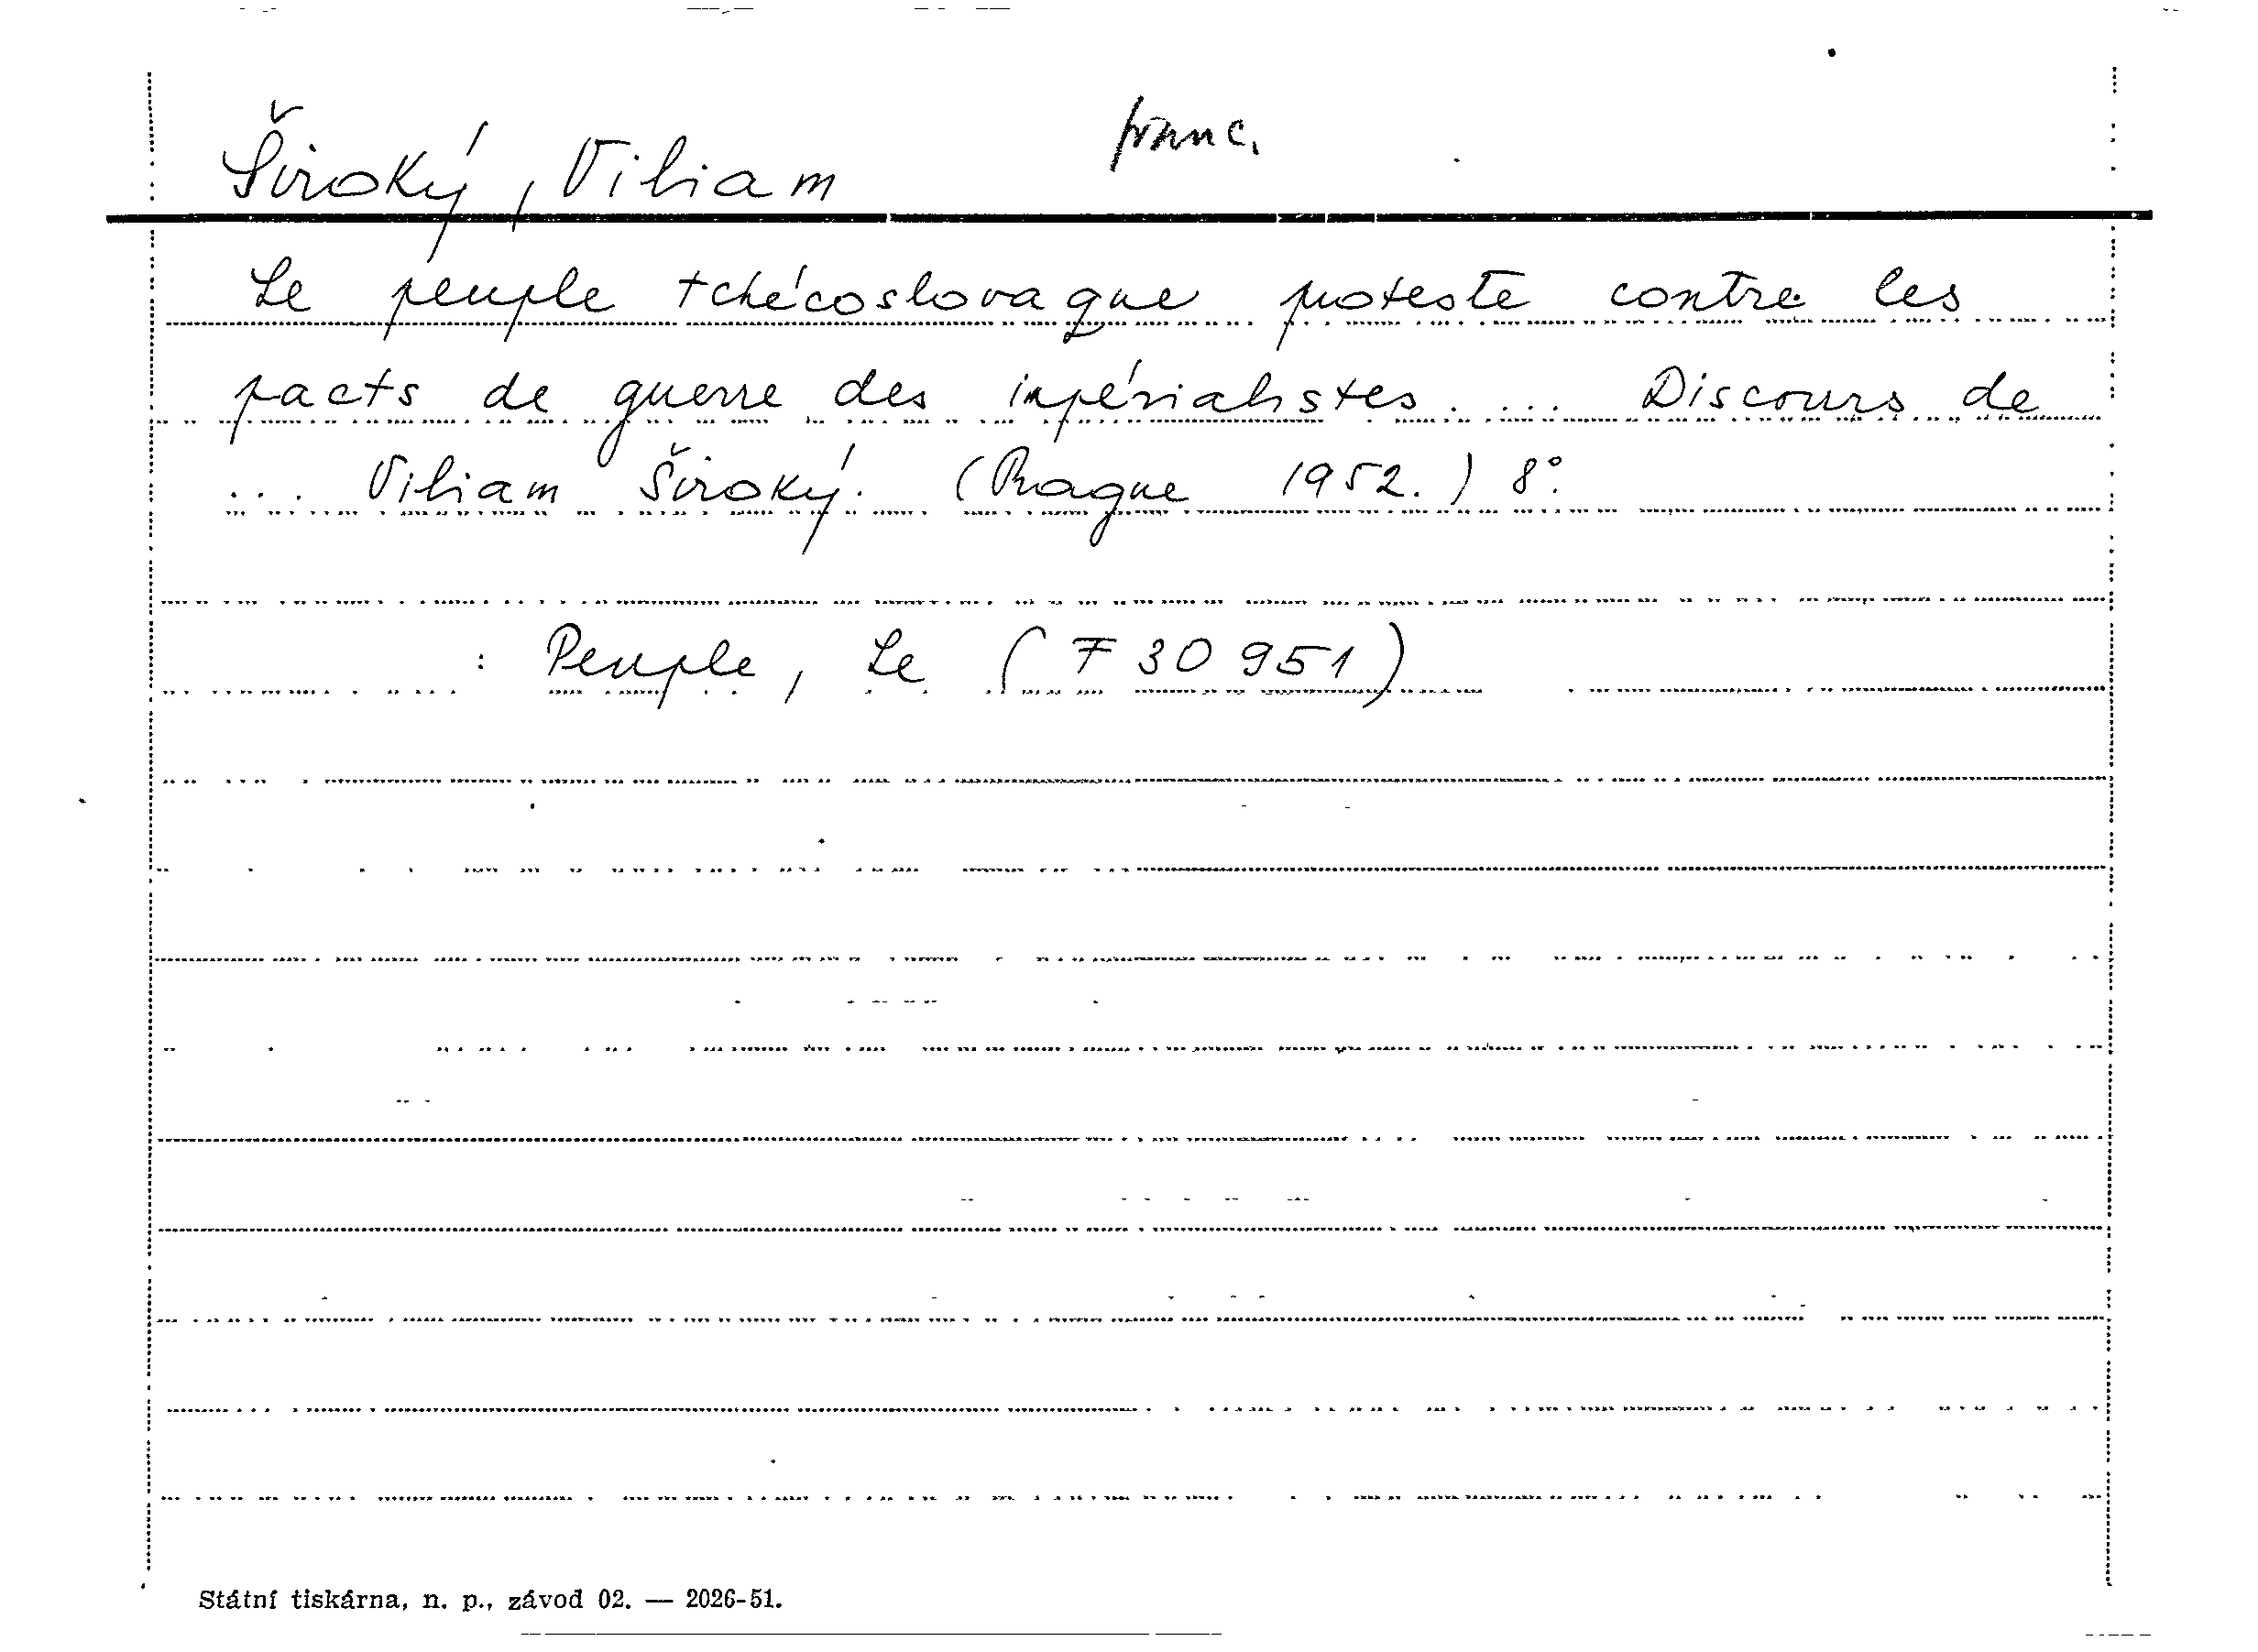 Široký, Viliam franc.
Le peuple tchécoslovaque proteste contre les
pacts de guerre des impérialistes. ... Discours de
... Viliam Široký. (Prague 1952.) 8°.
: Peuple, Le (F 30 951)
Státní tiskárna, n. p., závod 02. — 2026-51.